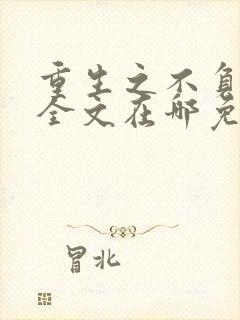 重生之不负
全文在哪免
冒北